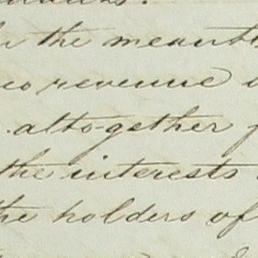 the meantime
revenue
altogether
the interests
the holders of